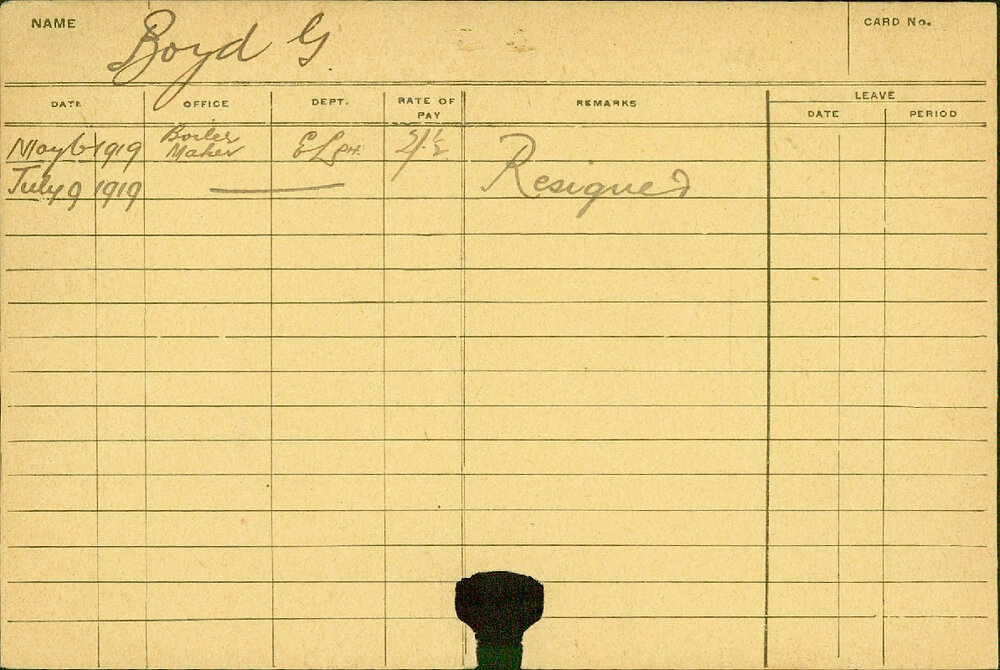 NAME Boyd G CARD No.
DATE OFFICE DEPT. RATE OF PAY REMARKS LEAVE
DATE PERIOD
May 6 1919 Boiler Maker ELPH. 2/1½
July 9 1919 Resigned